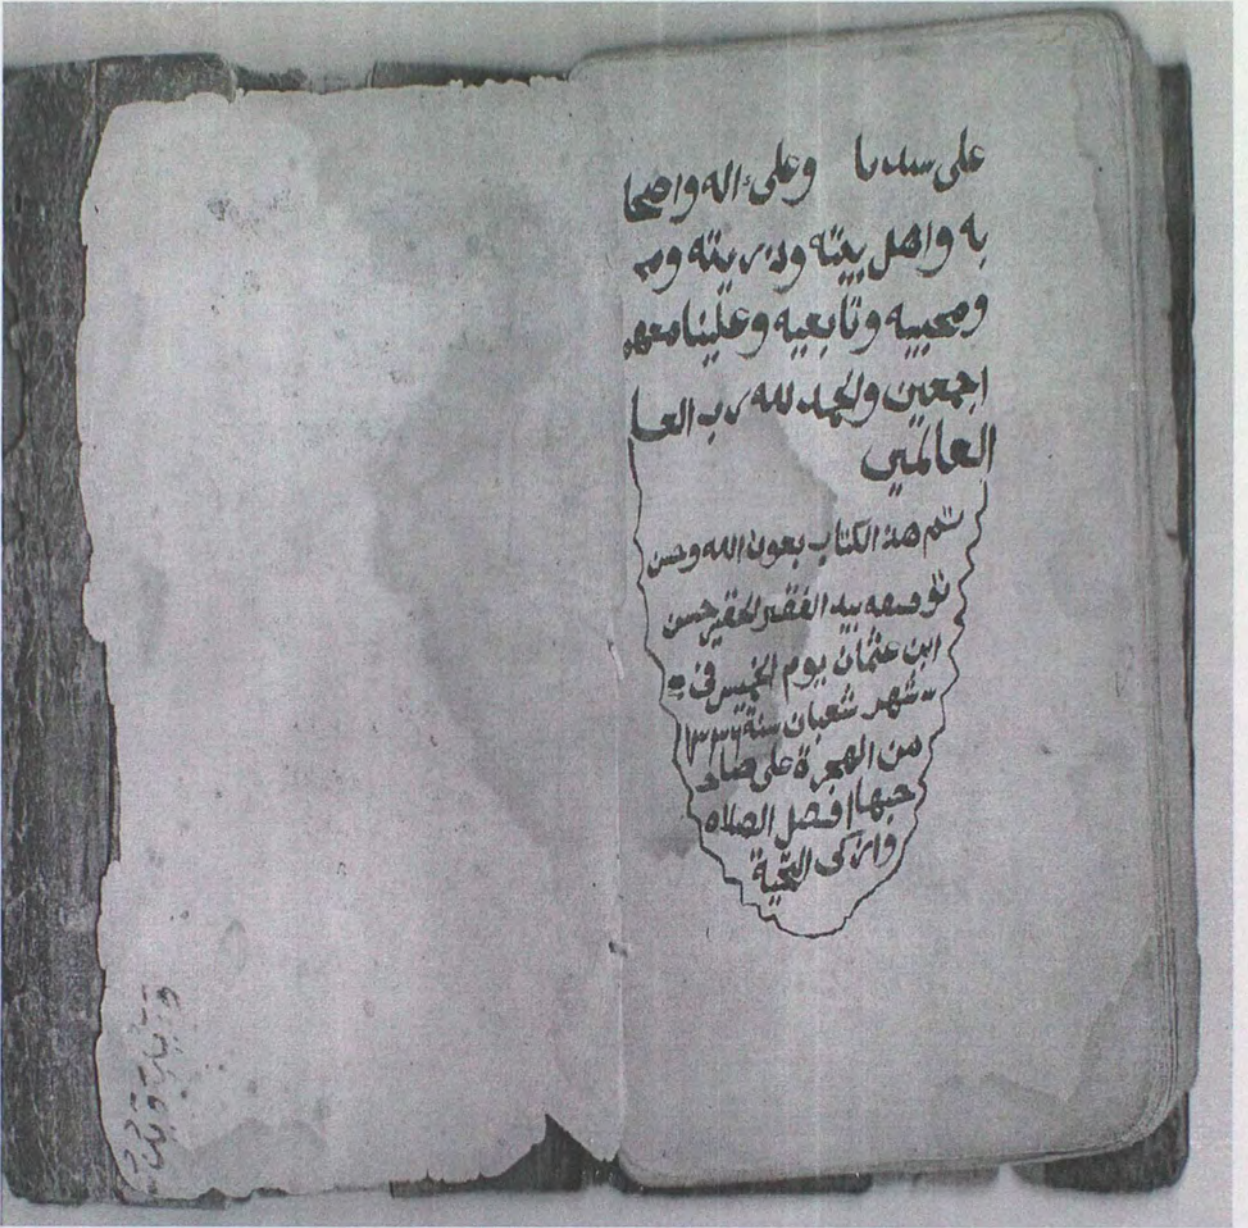 على سيدنا وعلىءاله واصحا
به واهل بيته وذريته ومـ
ومحبيه وتابعيه وعلينا معهم
اجمعين والحمد لله رب العا
العالمين
تم هذ الكتاب بعون الله وحسن
توفيقه بيد الفقير الحقير حسن
ابن عثمان يوم الخميس في
شهر شعبان سنة
من الهجرة على صا
حبها افضل الصلاه
وازكى التحية